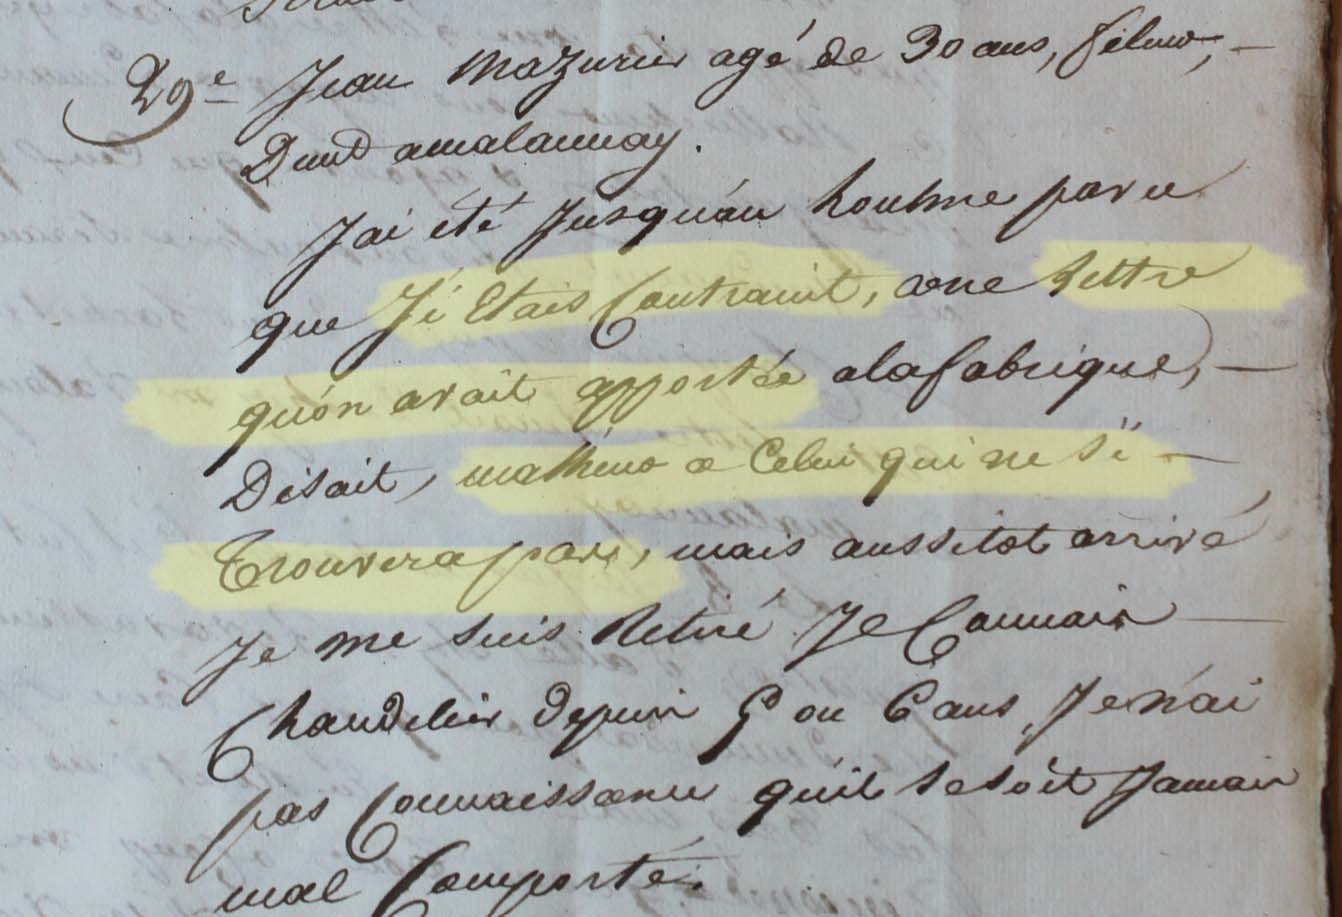 29e Jean Mazurier agé de 30 ans, fileur,
Dmt a malaunay.
J'ai été Jusqu'au houlme parce
que J'i Etais Contraint, une lettre
qu'on avait apportée a la fabrique,
Disait, malheur a Celui qui ne s'i
Trouvera pas, mais aussitot arrivé
Je me suis Retiré. Je Connais
Chandelier depuis 5 ou 6 ans, Je n'ai
pas Connaissance qu'il se soit Jamais
mal Comporté.